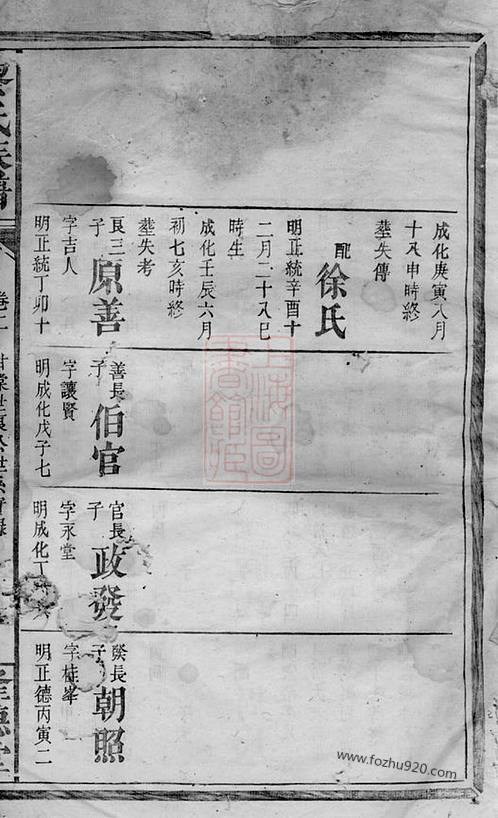 成化庚寅八月
十八申時終
塟失傳
配徐氏
明正統辛酉十
二月二十八巳
時生
成化壬辰六月
初七亥時終
塟失考
長三子原善
字吉人
明正統丁卯十
善長子伯官
字讓賢
明成化戊子七
官長子政發
字永堂
明成化丁
發長子朝照
字桂峯
明正德丙寅二
氏族譜
卷二
上海圖書館藏
www.fozhu920.com